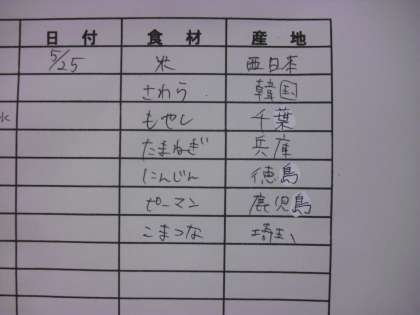 日付 食材 産地
5/25 米 西日本
さわら 韓国
もやし 千葉
たまねぎ 兵庫
にんじん 徳島
ピーマン 鹿児島
こまつな 埼玉